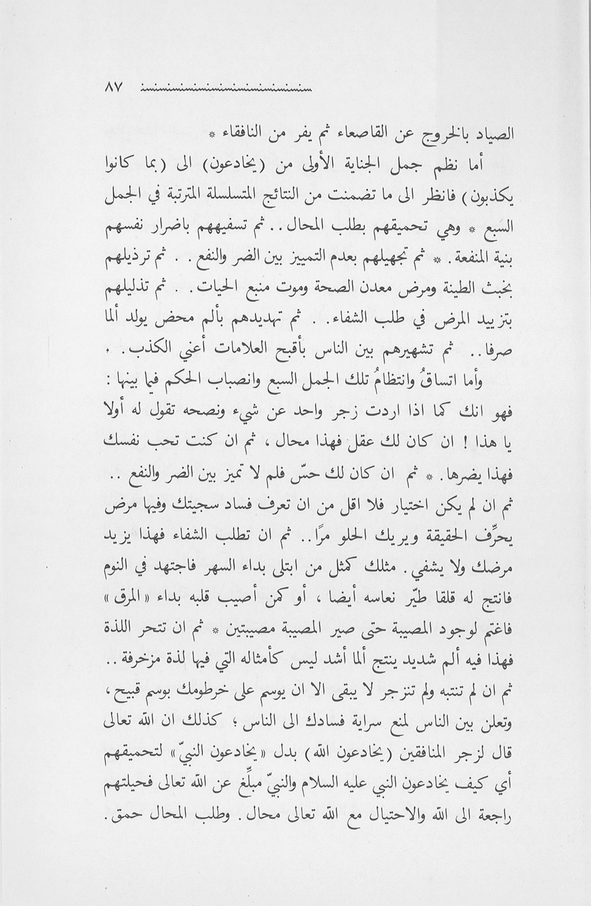 ٨٧
الصياد بالخروج عن القاصعاء ثم يفر من النافقاء *
أما نظم جمل الجناية الأولى من (يخادعون) الى (بما كانوا
يكذبون) فانظر الى ما تضمنت من النتائج المتسلسلة المترتبة في الجمل
السبع * وهي تحميقهم بطلب المحال .. ثم تسفيههم باضرار نفسهم
بنية المنفعة . * ثم تجهيلهم بعدم التمييز بين الضر والنفع . . ثم ترذيلهم
بخبث الطينة ومرض معدن الصحة وموت منبع الحيات . . ثم تذليلهم
بتزييد المرض في طلب الشفاء . . ثم تهديدهم بألم محض يولد ألما
صرفا .. ثم تشهيرهم بين الناس بأقبح العلامات أعني الكذب . .
وأما اتساقُ وانتظامُ تلك الجمل السبع وانصباب الحكم فيما بينها :
فهو انك كما اذا اردت زجر واحد عن شيء ونصحه تقول له أولا
يا هذا ! ان كان لك عقل فهذا محال ، ثم ان كنت تحب نفسك
فهذا يضرها . * ثم ان كان لك حسّ فلم لا تميز بين الضر والنفع ..
ثم ان لم يكن اختيار فلا اقل من ان تعرف فساد سجيتك وفيها مرض
يحرِّف الحقيقة ويريك الحلو مرًا .. ثم ان تطلب الشفاء فهذا يزيد
مرضك ولا يشفي . مثلك كمثل من ابتلى بداء السهر فاجتهد في النوم
فانتج له قلقا طيّر نعاسه أيضا ، أو كمن أصيب قلبه بداء «المرق»
فاغتم لوجود المصيبة حتى صير المصيبة مصيبتين * ثم ان تتحر اللذة
فهذا فيه ألم شديد ينتج ألما أشد ليس كأمثاله التي فيها لذة مزخرفة ..
ثم ان لم تنتبه ولم تنزجر لا يبقى الا ان يوسم على خرطومك بوسم قبيح ،
وتعلن بين الناس لمنع سراية فسادك الى الناس ؛ كذلك ان الله تعالى
قال لزجر المنافقين (يخادعون الله) بدل «يخادعون النبيّ» لتحميقهم
أي كيف يخادعون النبي عليه السلام والنبيّ مبلِّغ عن الله تعالى فحيلتهم
راجعة الى الله والاحتيال مع الله تعالى محال . وطلب المحال حمق .